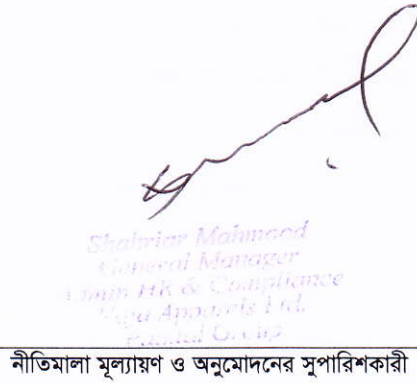 Shahriar Mahmood
General Manager
Admin HR & Compliance
Apparels Ltd.
Group
নীতিমালা মূল্যায়ণ ও অনুমোদনের সুপারিশকারী